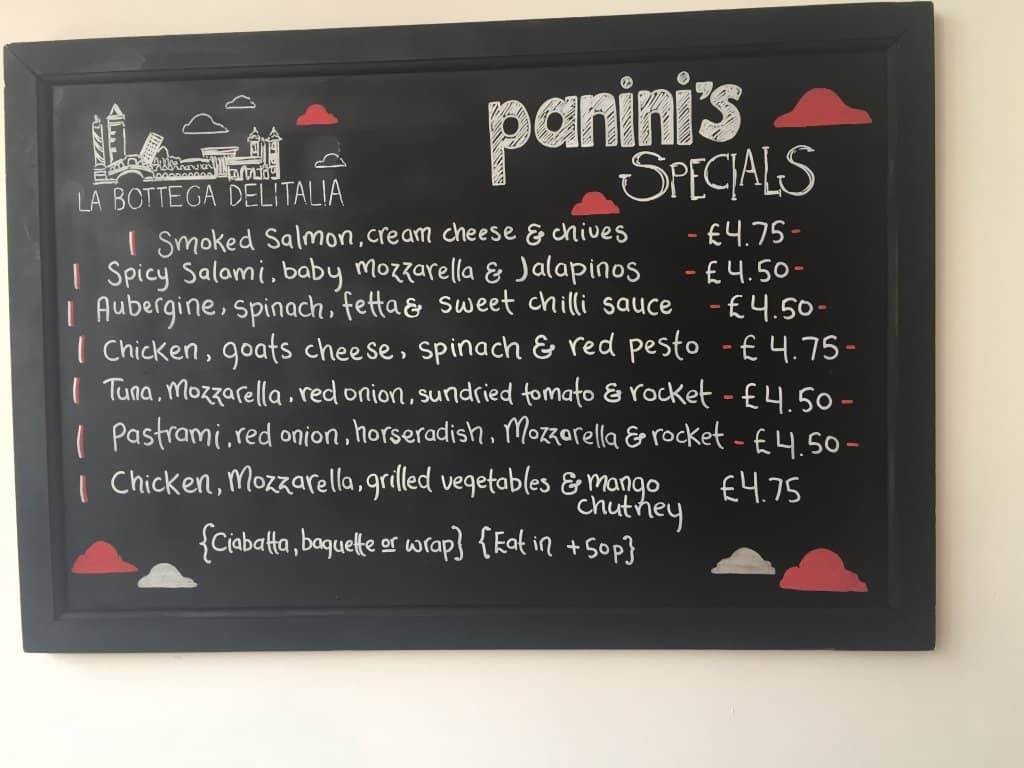 panini's
SPECIALS
LA BOTTEGA DELITALIA
Smoked Salmon, cream cheese & chives - £4.75 -
Spicy Salami, baby Mozzarella & Jalapinos - £4.50 -
Aubergine, spinach, fetta & sweet chilli sauce - £4.50 -
Chicken, goats cheese, spinach & red pesto - £4.75 -
Tuna, Mozzarella, red onion, sundried tomato & rocket - £4.50 -
Pastrami, red onion, horseradish, Mozzarella & rocket - £4.50 -
Chicken, Mozzarella, grilled vegetables & mango £4.75
chutney
{Ciabatta, baguette or wrap} {Eat in +50p}